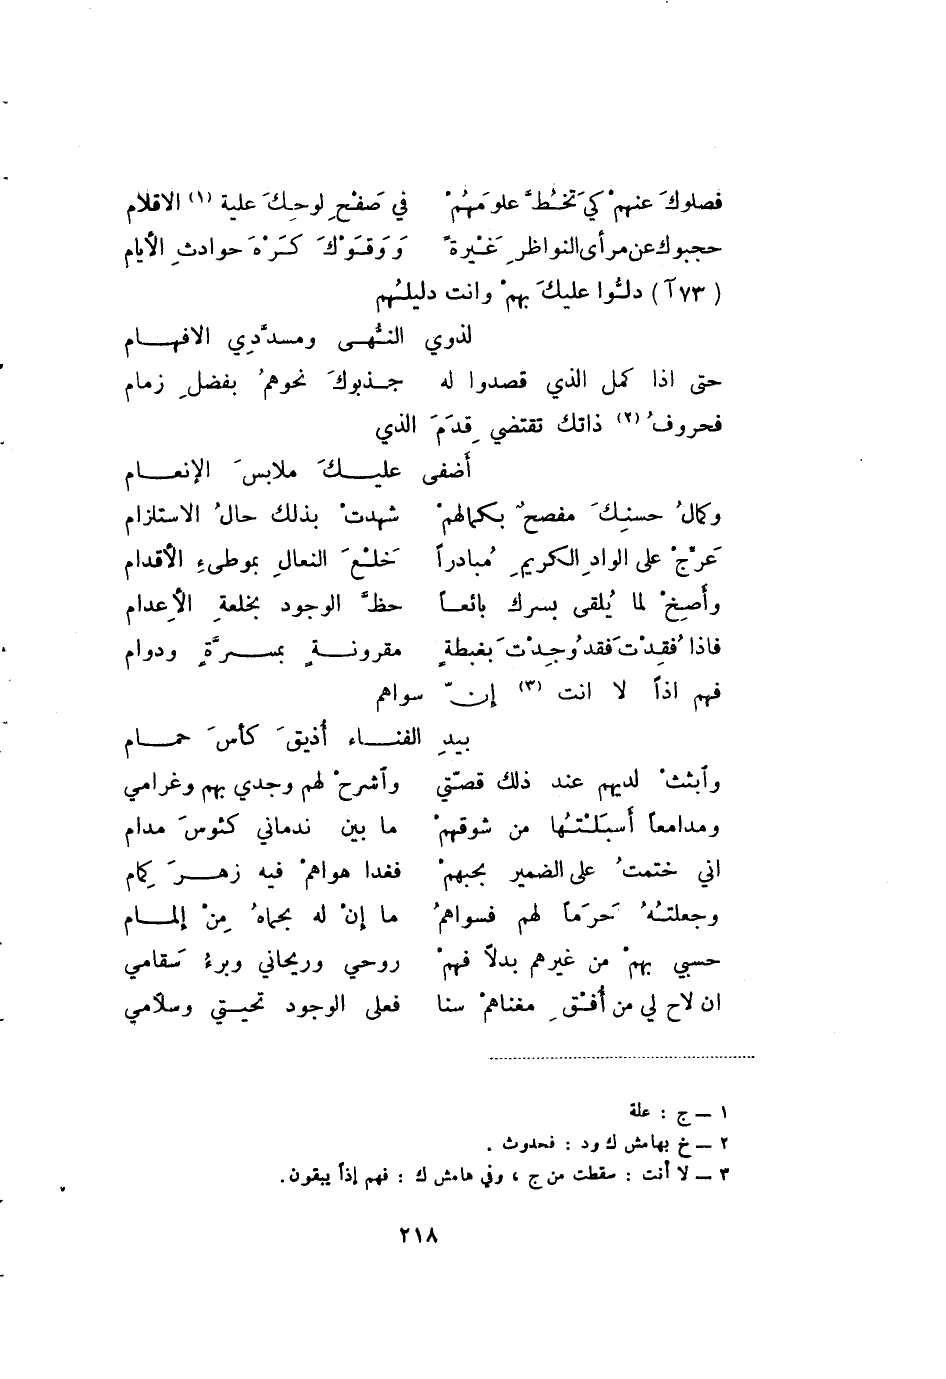 فصلوكَ عنهمْ كيَ تخُطَّ علومَهُمْ في صَفْحِ لوحِكَ علية (١) الاقلام
حجبوك عن مرأى النواظرِ غَيْرةً وَوَقَوْكَ كَرْهَ حوادثِ الأيام
( ٧٣آ ) دلُّوا عليكَ بهمْ وانت دليلُهم
لذوي النُّهى ومسدَّدِي الافهام
حتى اذا كمل الذي قصدوا له جذبوكَ نحوهمُ بفضلِ زمام
فحروفُ (٢) ذاتك تقتضي قِدَمَ الذي
أضفى عليكَ ملابسَ الإنعام
وكمالُ حسنِكَ مفصحٌ بكمالهمْ شهدتْ بذلك حالُ الاستلزام
عَرِّجْ على الوادِ الكريمِ مُبادراً خَلْعَ النعالِ بموطىءِ الأقدام
وأصِخْ لما يُلقى بسرك بائعاً حظَّ الوجود بخلعةِ الأعدام
فاذا فُقِدْتَ فقد وُجِدْتَ بغبطةٍ مقرونةٍ بمسرَّةٍ ودوام
فهم اذاً لا انت (٣) إنّ سواهم
بيدِ الفناء أُذيقَ كأسَ حمام
وآبثثْ لديهم عند ذلك قصّتي وآشرحْ لهم وجدي بهم وغرامي
ومدامعاً أسبَلْتُها من شوقهمْ ما بين ندماني كئوسَ مدام
اني ختمتُ على الضمير بحبهمْ فغدا هواهمْ فيه زهرَ كِمام
وجعلتُهُ حَرَماً لهم فسواهمُ ما إنْ له بحماهُ مِنْ إلمام
حسبي بهمْ من غيرهم بدلاً فهمْ روحي وريحاني وبرءُ سَقامي
ان لاح لي من أُفْقِ مغناهمْ سنا فعلى الوجود تحيتي وسلامي
١ – ج : علة
٢ – خ بهامش ك ود : فحدوث .
٣ – لا أنت : سقطت من ج ، وفي هامش ك : فهم إذاً يبقون.
٢١٨